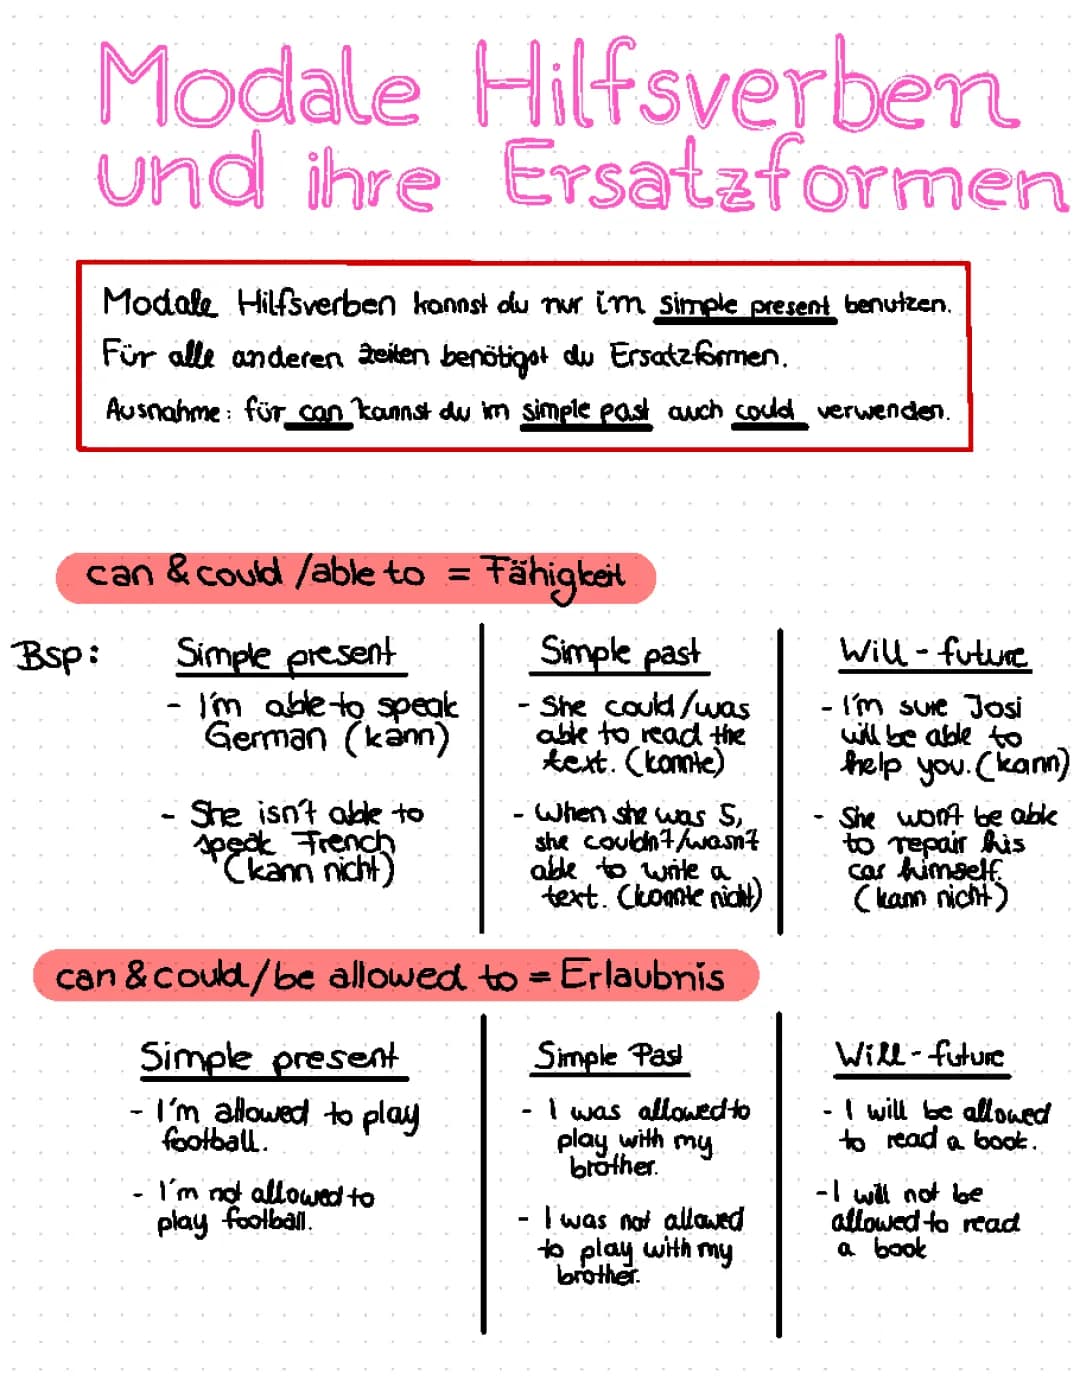 Modale Hilfsverben
und ihre Ersatzformen
Modale Hilfsverben kannst du nur im simple present benutzen.
Für alle anderen Zeiten benötigst du Ersatzformen.
Ausnahme: für can kannst du im simple past auch could verwenden.
can & could /able to = Fähigkeit
Bsp:
Simple present
- I'm able to speak
German (kann)
- She isn't able to
speak French
(kann nicht)
Simple past
- She could/was
able to read the
text. (konnte)
- When she was 5,
she couldn't/wasn't
able to write a
text. (konnte nicht)
Will-future
- I'm sure Josi
will be able to
help you. (kann)
- She won't be able
to repair his
car himself.
(kann nicht)
can & could/be allowed to = Erlaubnis
Simple present
- I'm allowed to play
football.
- I'm not allowed to
play football.
Simple Past
- I was allowed to
play with my
brother.
- I was not allowed
to play with my
brother.
Will-future
- I will be allowed
to read a book.
- I will not be
allowed to read
a book